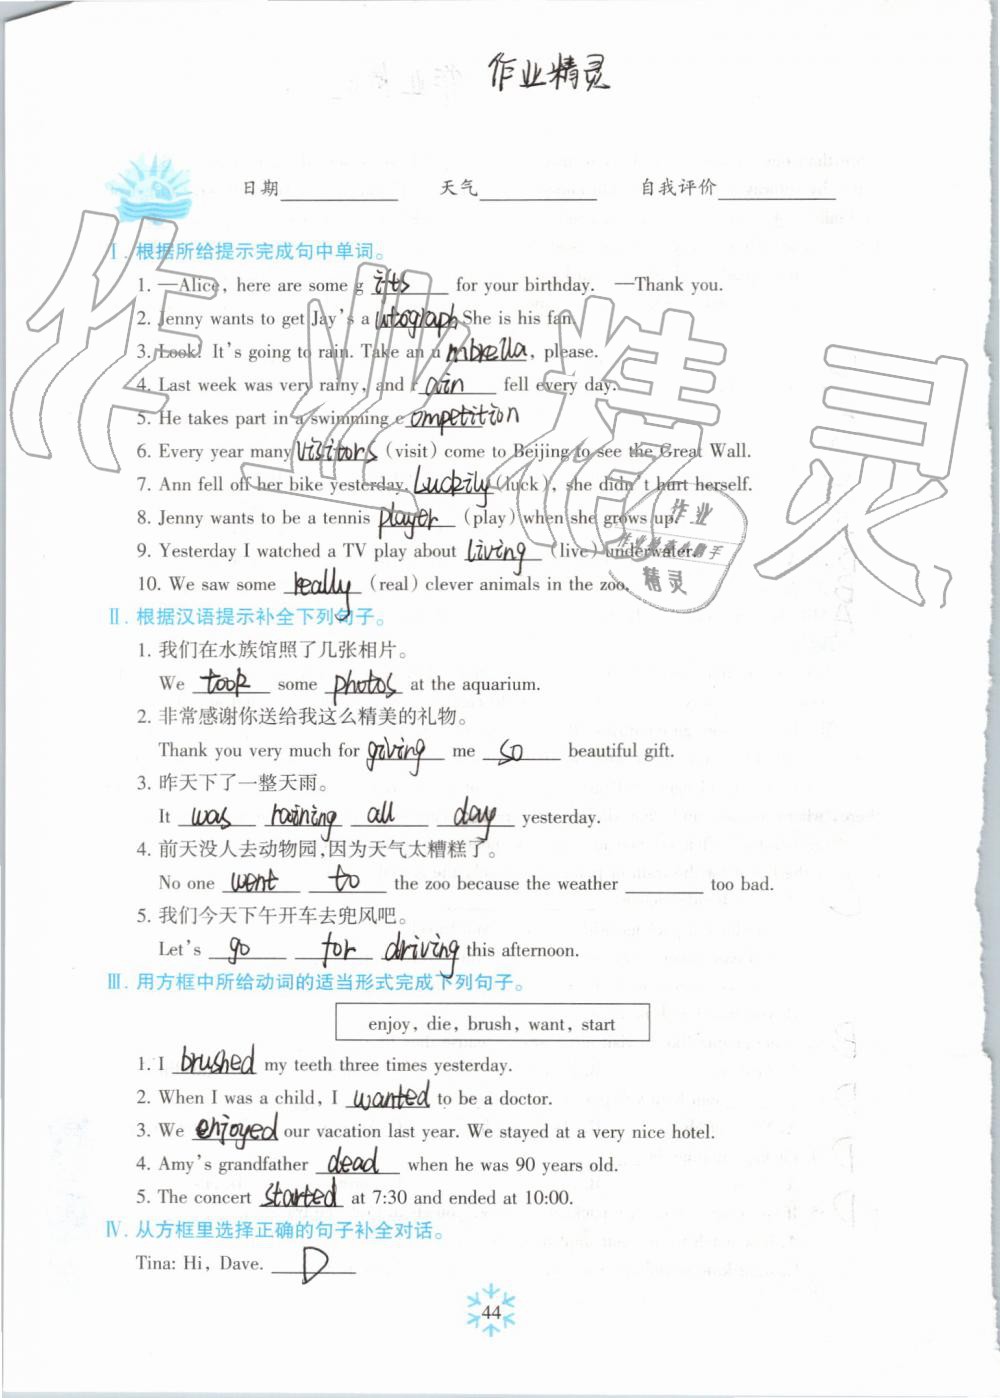 作业精灵
日期 天气 自我评价
Ⅰ. 根据所给提示完成句中单词。
1. —Alice, here are some gifts for your birthday. —Thank you.
2. Jenny wants to get Jay's autograph. She is his fan.
3. Look! It's going to rain. Take an umbrella, please.
4. Last week was very rainy, and rain fell every day.
5. He takes part in a swimming competition
6. Every year many visitors (visit) come to Beijing to see the Great Wall.
7. Ann fell off her bike yesterday. Luckily (luck), she didn't hurt herself.
8. Jenny wants to be a tennis player (play) when she grows up.
9. Yesterday I watched a TV play about living (live) underwater.
10. We saw some really (real) clever animals in the zoo.
Ⅱ. 根据汉语提示补全下列句子。
1. 我们在水族馆照了几张相片。
We took some photos at the aquarium.
2. 非常感谢你送给我这么精美的礼物。
Thank you very much for giving me so beautiful gift.
3. 昨天下了一整天雨。
It was raining all day yesterday.
4. 前天没人去动物园,因为天气太糟糕了。
No one went to the zoo because the weather ________ too bad.
5. 我们今天下午开车去兜风吧。
Let's go for driving this afternoon.
Ⅲ. 用方框中所给动词的适当形式完成下列句子。
enjoy, die, brush, want, start
1. I brushed my teeth three times yesterday.
2. When I was a child, I wanted to be a doctor.
3. We enjoyed our vacation last year. We stayed at a very nice hotel.
4. Amy's grandfather dead when he was 90 years old.
5. The concert started at 7:30 and ended at 10:00.
Ⅳ. 从方框里选择正确的句子补全对话。
Tina: Hi, Dave. D
44
作业精灵
作业
精灵